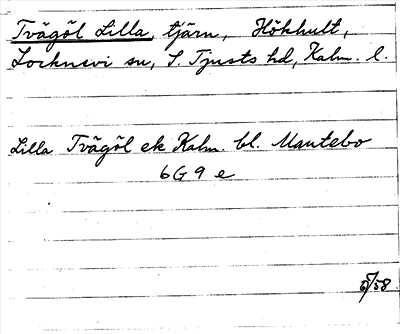 Tvägöl Lilla, tjärn, Hökhult,
Locknevi sn, S. Tjusts hd, Kalm. l.
Lilla Tvägöl ek Kalm. bl. Mantebo
6G 9 e
5/58.